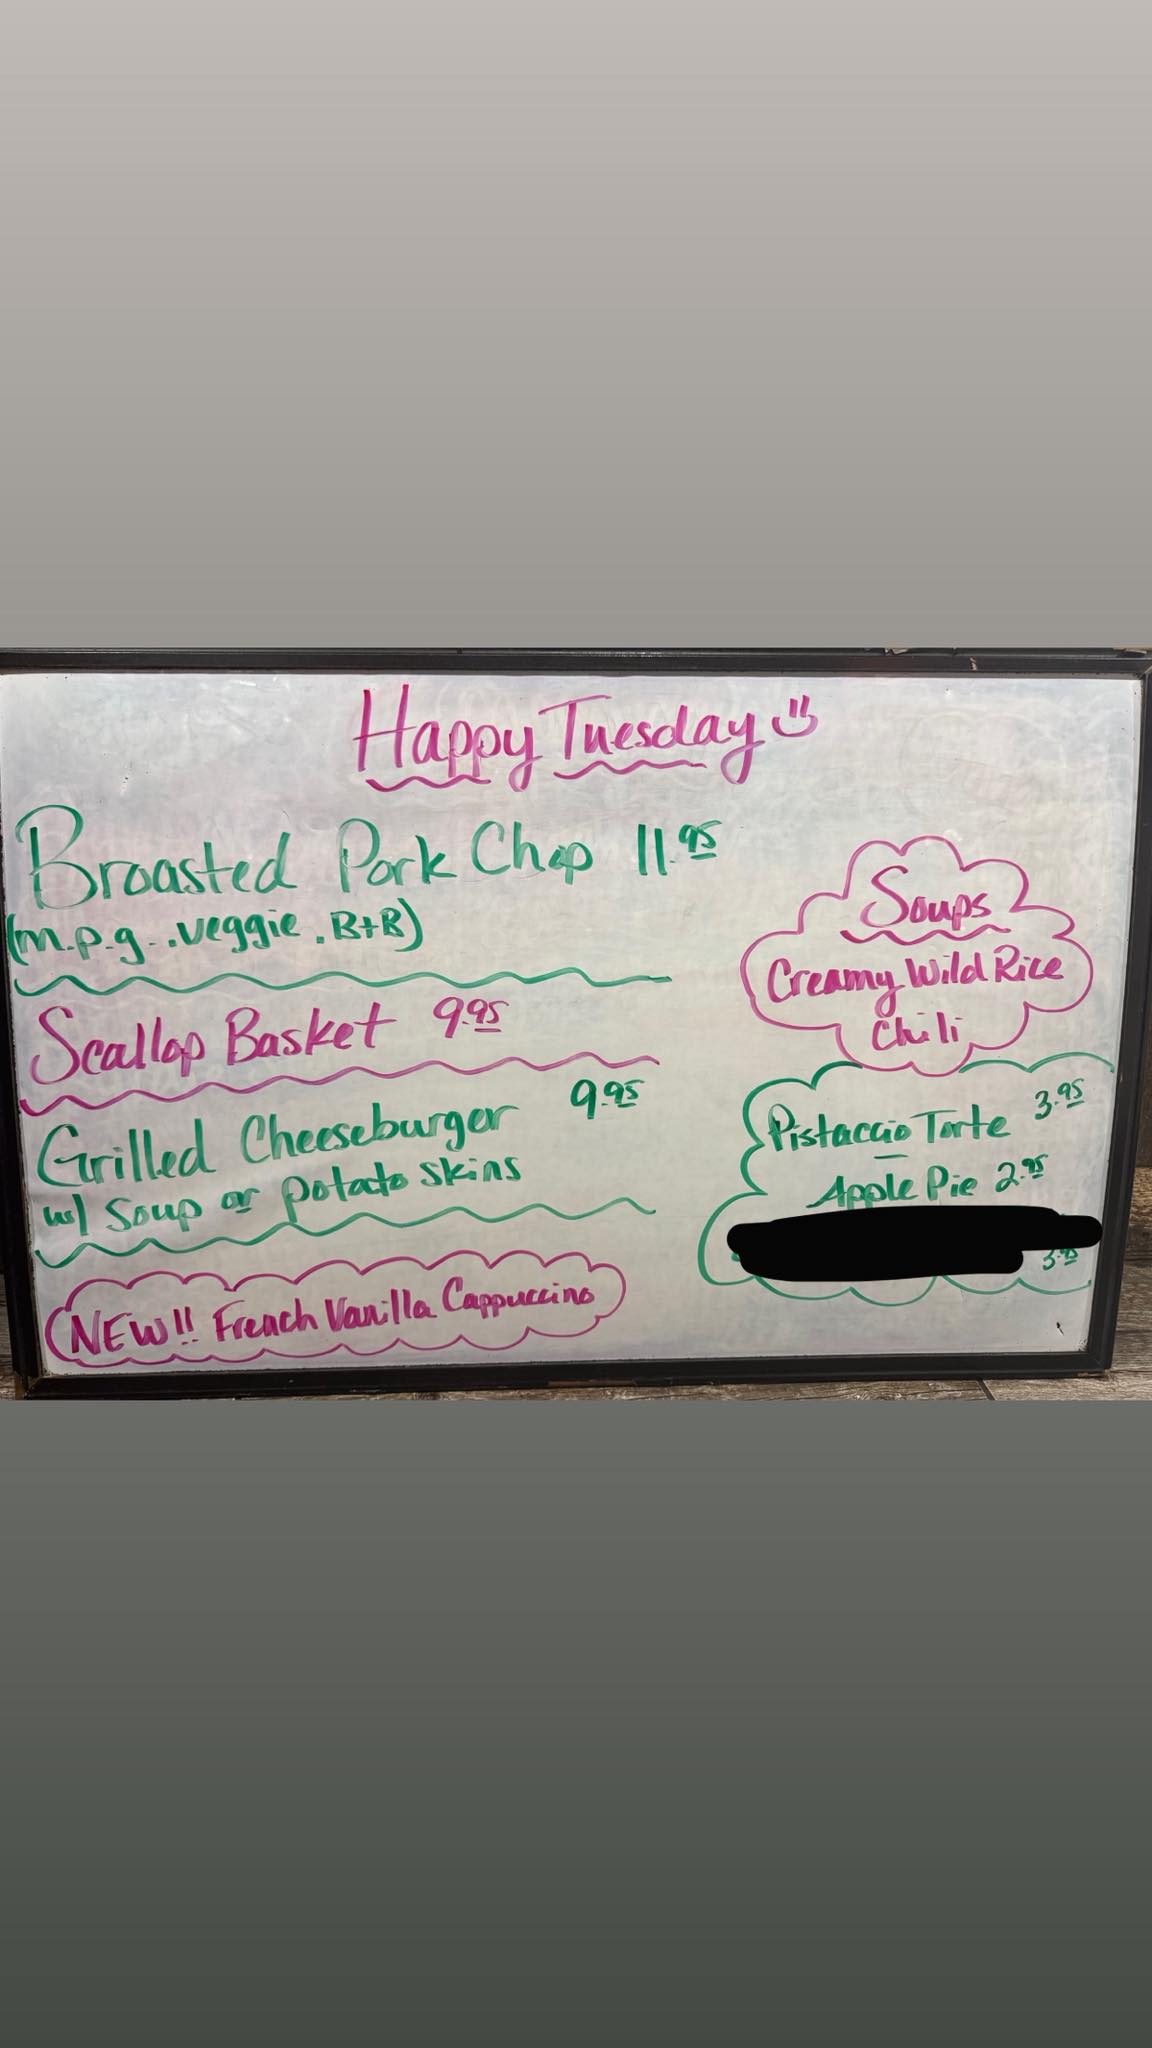 Happy Tuesday
Broasted Pork Chop 11.95
(m.p.g. . veggie . B+B)
Scallop Basket 9.95
Grilled Cheeseburger 9.95
w/ Soup or potato skins
NEW!! French Vanilla Cappuccino
Soups
Creamy Wild Rice
Chili
Pistaccio Torte 3.95
Apple Pie 2.95
3.95